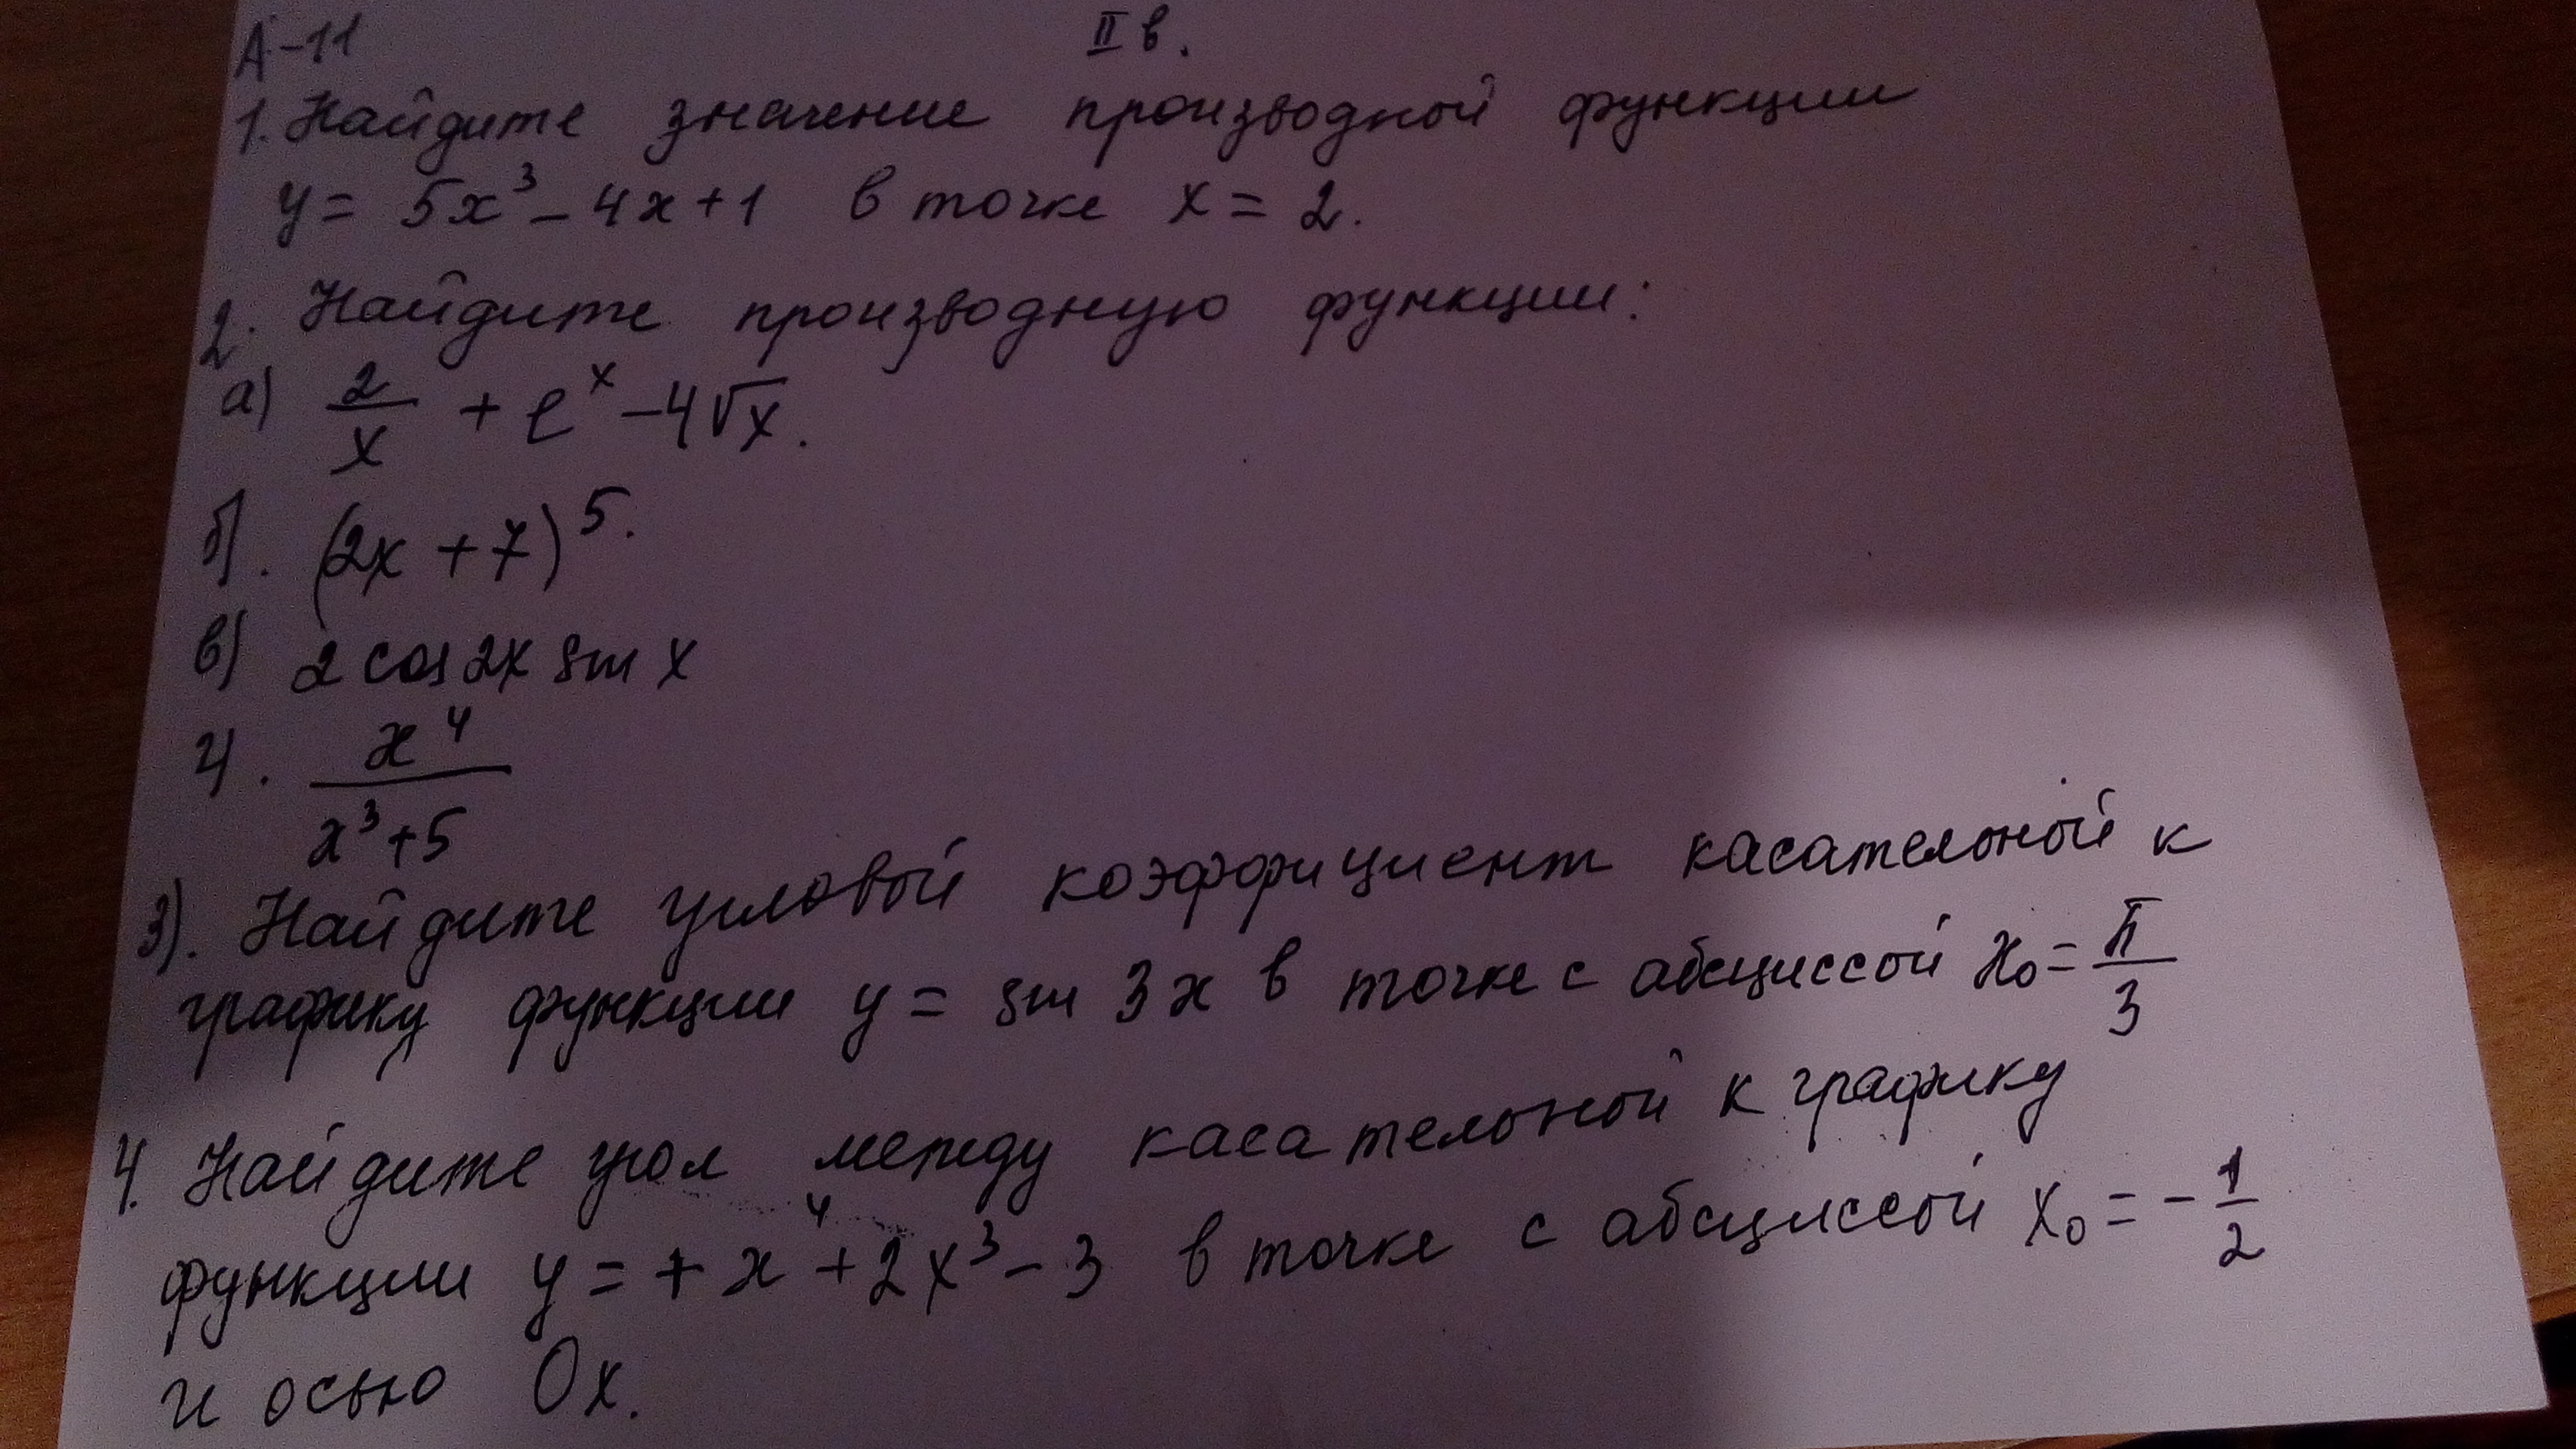 А-11
II в.
1. Найдите значение производной функции
y = 5x³ - 4x + 1 в точке x = 2.
2. Найдите производную функции:
а) 2/x + e^x - 4√x.
б). (2x + 7)^5.
в) 2 cos 2x sin x
г). x⁴/(x³+5)
3). Найдите угловой коэффициент касательной к
графику функции y = sin 3x в точке с абсциссой x₀ = π/3
4. Найдите угол между касательной к графику
функции y = + x⁴ + 2x³ - 3 в точке с абсциссой x₀ = - 1/2
и осью Ox.